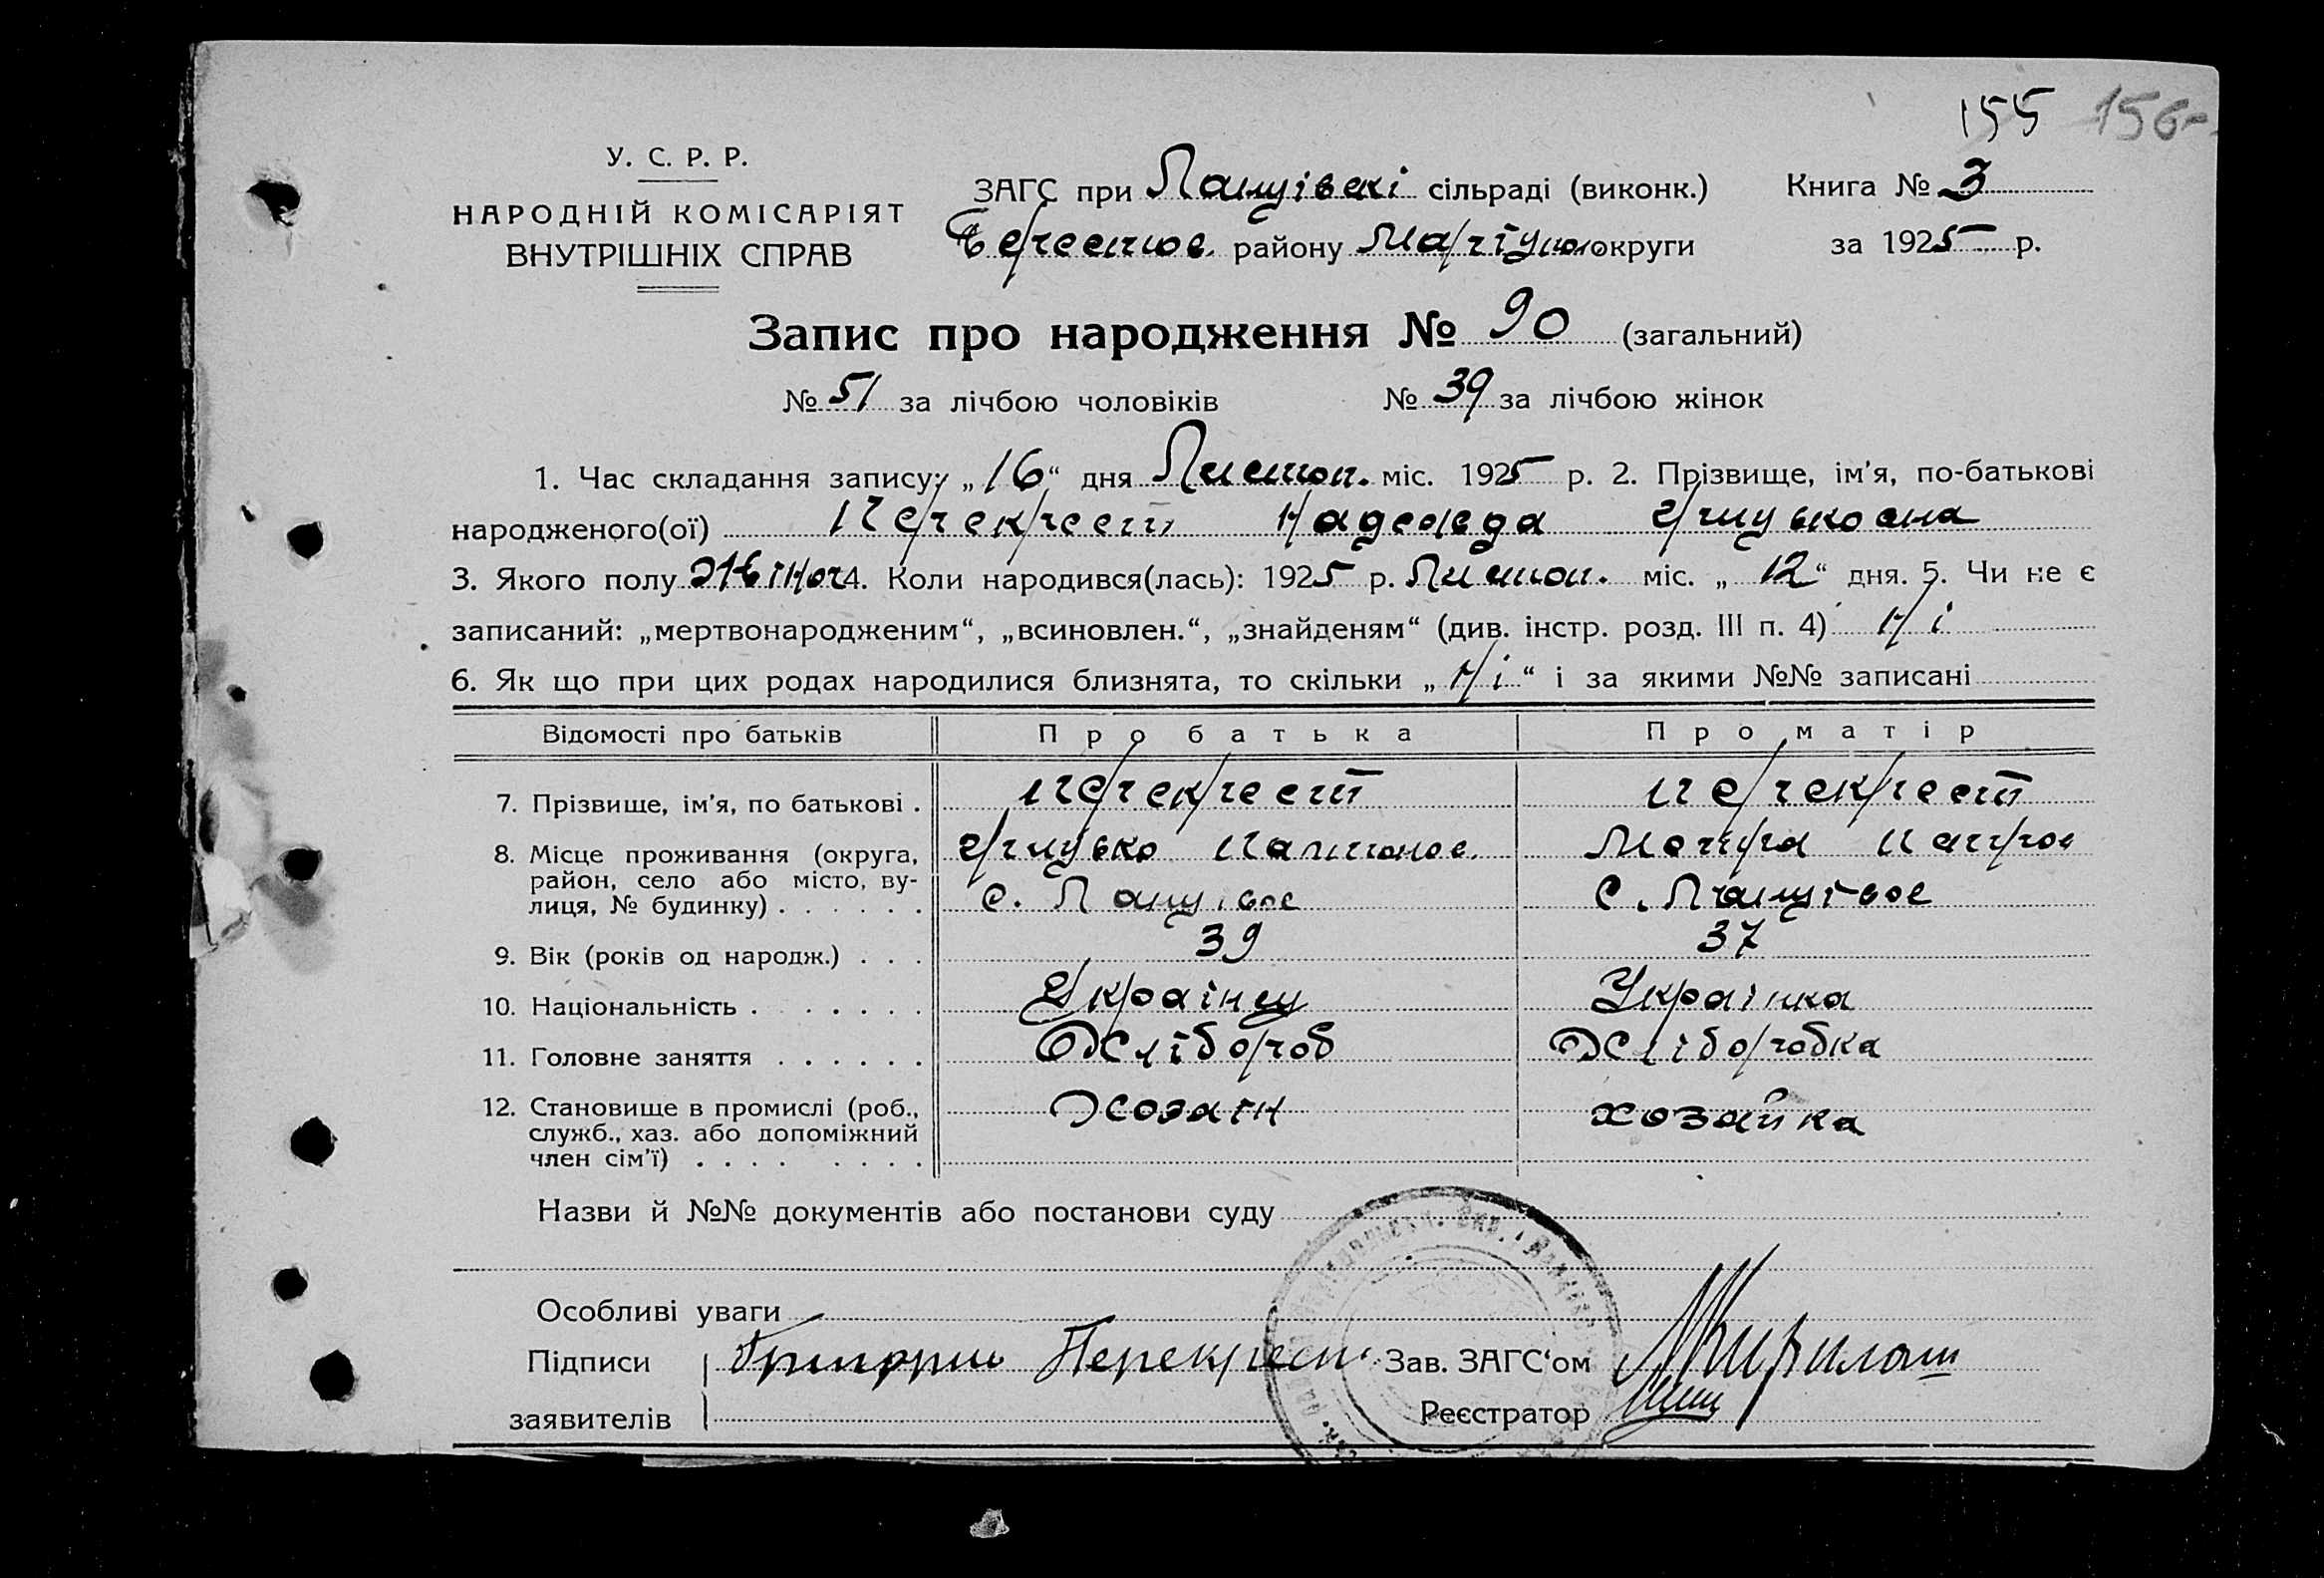 155 156
У. С. Р. Р.
НАРОДНІЙ КОМІСАРІЯТ
ВНУТРІШНІХ СПРАВ
ЗАГС при сільраді (виконк.) Книга № 3
району округи за 1925 р.
Запис про народження № 90 (загальний)
№ 51 за лічбою чоловіків № 39 за лічбою жінок
1. Час складання запису: „16“ дня Листоп. міс. 1925 р. 2. Прізвище, ім'я, по-батькові
народженого(ої) Перекрест Надежда Грицьковна
3. Якого полу Жіноч 4. Коли народився(лась): 1925 р. Листоп. міс. „12“ дня. 5. Чи не є
записаний: „мертвонародженим“, „всиновлен.“, „знайденям“ (див. інстр. розд. III п. 4) Ні
6. Як що при цих родах народилися близнята, то скільки „Ні“ і за якими №№ записані
Відомості про батьків Про батька Про матір
7. Прізвище, ім'я, по батькові . Перекрест Перекрест
Грицько
8. Місце проживання (округа,
район, село або місто, ву-
лиця, № будинку) . . . . . . с. с.
9. Вік (років од народж.) . . . 39 37
10. Національність . . . . . . Українец Українка
11. Головне заняття . . . . . . Хлібороб Хліборобка
12. Становище в промислі (роб.,
служб., хаз. або допоміжний
член сім'ї) . . . . . . . . Хозаін хозайка
Назви й №№ документів або постанови суду
Особливі уваги
Підписи Григорий Перекрест Зав. ЗАГС'ом
заявителів Реєстратор